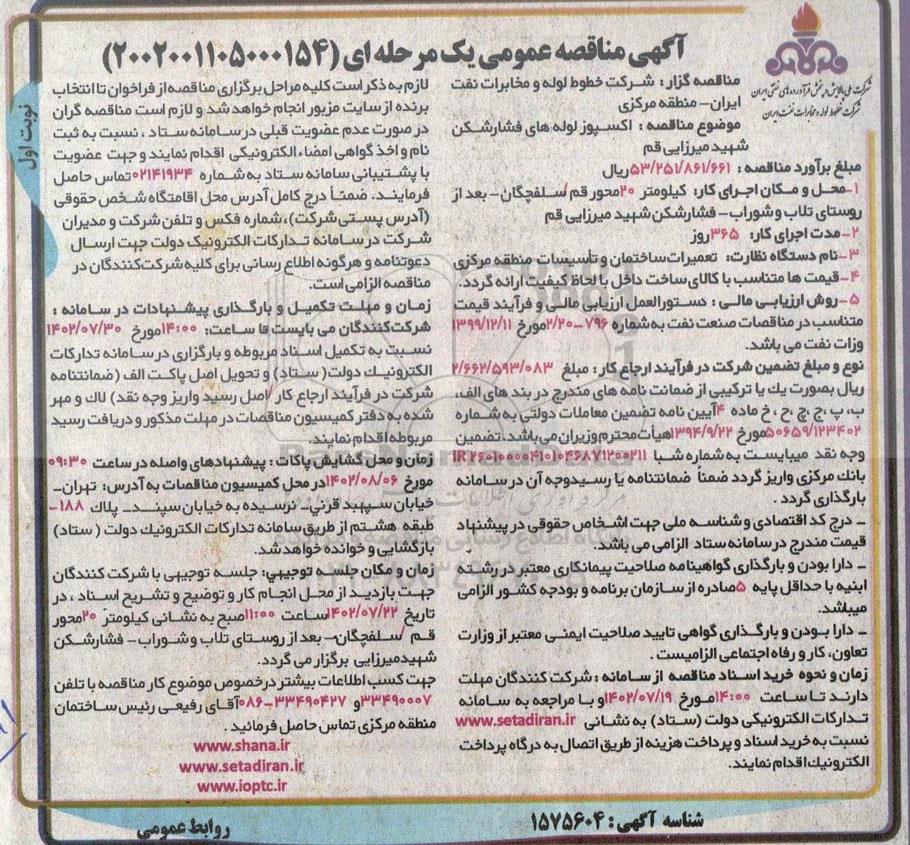 آگهی مناقصه عمومی یک مرحله ای (۲۰۰۲۰۰۱۱۰۵۰۰۰۱۵۴)
شرکت ملی پالایش و پخش فرآورده های نفتی ایران
شرکت خطوط لوله و مخابرات نفت ایران
نوبت اول
مناقصه گزار : شرکت خطوط لوله و مخابرات نفت
ایران– منطقه مرکزی
موضوع مناقصه : اکسپوز لوله های فشارشکن
شهید میرزایی قم
مبلغ برآورد مناقصه : ۵۳/۲۵۱/۸۶۱/۶۶۱ریال
۱–محل و مکان اجرای کار: کیلومتر ۲۰محور قم/سلفچگان– بعد از
روستای تلاب و شوراب– فشارشکن شهید میرزایی قم
۲–مدت اجرای کار: ۳۶۵روز
۳–نام دستگاه نظارت: تعمیرات ساختمان و تأسیسات منطقه مرکزی
۴–قیمت ها متناسب با کالای ساخت داخل با لحاظ کیفیت ارائه گردد.
۵–روش ارزیابی مالی : دستورالعمل ارزیابی مالی و فرآیند قیمت
متناسب در مناقصات صنعت نفت به شماره ۷۹۶–۲/۲۰مورخ ۱۳۹۹/۱۲/۱۱
وزات نفت می باشد.
نوع و مبلغ تضمین شرکت در فرآیند ارجاع کار : مبلغ ۲/۶۶۲/۵۹۳/۰۸۳
ریال بصورت یك یا ترکیبی از ضمانت نامه های مندرج در بند های الف،
ب، پ، ج، چ، ح، خ ماده ۴آیین نامه تضمین معاملات دولتی به شماره
۵۰۶۵۹/۱۲۳۴۰۲مورخ ۱۳۹۴/۹/۲۲هیأت محترم وزیران می باشد. تضمین
وجه نقد میبایست به شماره شبا IR ۲۶۰۱۰۰۰۰۴۱۰۱۰۴۶۸۷۱۲۰۰۲۱۱
بانك مرکزی واریز گردد ضمناً ضمانتنامه یا رسیدوجه آن در سامانه
بارگذاری گردد .
– درج کد اقتصادی و شناسه ملی جهت اشخاص حقوقی در پیشنهاد
قیمت مندرج در سامانه ستاد الزامی می باشد.
– دارا بودن و بارگذاری گواهینامه صلاحیت پیمانکاری معتبر در رشته
ابنیه با حداقل پایه ۵صادره از سازمان برنامه و بودجه کشور الزامی
میباشد.
– دارا بودن و بارگذاری گواهی تایید صلاحیت ایمنی معتبر از وزارت
تعاون، کار و رفاه اجتماعی الزامیست .
زمان و نحوه خرید اسناد مناقصه از سامانه : شرکت کنندگان مهلت
دارند تا ساعت ۱۴:۰۰مورخ ۱۴۰۲/۰۷/۱۹و با مراجعه به سامانه
تدارکات الکترونیکی دولت (ستاد) به نشانی www.setadiran.ir
نسبت به خرید اسناد و پرداخت هزینه از طریق اتصال به درگاه پرداخت
الکترونیك اقدام نمایند.
لازم به ذکر است کلیه مراحل برگزاری مناقصه از فراخوان تا انتخاب
برنده از سایت مزبور انجام خواهد شد و لازم است مناقصه گران
در صورت عدم عضویت قبلی در سامانه ستاد ، نسبت به ثبت
نام و اخذ گواهی امضاء الکترونیکی اقدام نمایند و جهت عضویت
با پشتیبانی سامانه ستاد به شماره ۰۲۱۴۱۹۳۴تماس حاصل
فرمایند. ضمناً درج کامل آدرس محل اقامتگاه شخص حقوقی
(آدرس پستی شرکت)، شماره فکس و تلفن شرکت و مدیران
شرکت در سامانه تدارکات الکترونیک دولت جهت ارسال
دعوتنامه و هرگونه اطلاع رسانی برای کلیه شرکت کنندگان در
مناقصه الزامی است.
زمان و مهلت تکمیل و بارگذاری پیشنهادات در سامانه :
شرکت کنندگان می بایست تا ساعت: ۱۴:۰۰مورخ ۱۴۰۲/۰۷/۳۰
نسبت به تکمیل اسناد مربوطه و بارگزاری در سامانه تدارکات
الکترونیك دولت ( ستاد) و تحویل اصل پاکت الف (ضمانتنامه
شرکت در فرآیند ارجاع کار /اصل رسید واریز وجه نقد) لاك و مهر
شده به دفتر کمیسیون مناقصات در مهلت مذکور و دریافت رسید
مربوطه اقدام نمایند.
زمان و محل گشایش پاکات : پیشنهادهای واصله در ساعت ۰۹:۳۰
مورخ ۱۴۰۲/۰۸/۰۶در محل کمیسیون مناقصات به آدرس: تهران–
خیابان سپهبد قرنی– نرسیده به خیابان سپند– پلاك ۱۸۸–
طبقه هشتم از طریق سامانه تدارکات الکترونیك دولت ( ستاد)
بازگشایی و خوانده خواهد شد.
زمان و مکان جلسه توجیهی: جلسه توجیهی با شرکت کنندگان
جهت بازدید از محل انجام کار و توضیح و تشریح اسناد ، در
تاریخ ۱۴۰۲/۰۷/۲۲ساعت ۱۱:۰۰صبح به نشانی کیلومتر ۲۰محور
قم /سلفچگان– بعد از روستای تلاب و شوراب– فشارشکن
شهیدمیرزایی برگزار می گردد.
جهت کسب اطلاعات بیشتر درخصوص موضوع کار مناقصه با تلفن
۳۳۴۹۰۰۰۷و ۳۳۴۹۰۴۲۷–۰۸۶آقای رفیعی رئیس ساختمان
منطقه مرکزی تماس حاصل فرمائید .
www.shana.ir
www.setadiran.ir
www.ioptc.ir
شناسه آگهی : ۱۵۷۵۶۰۴
روابط عمومی